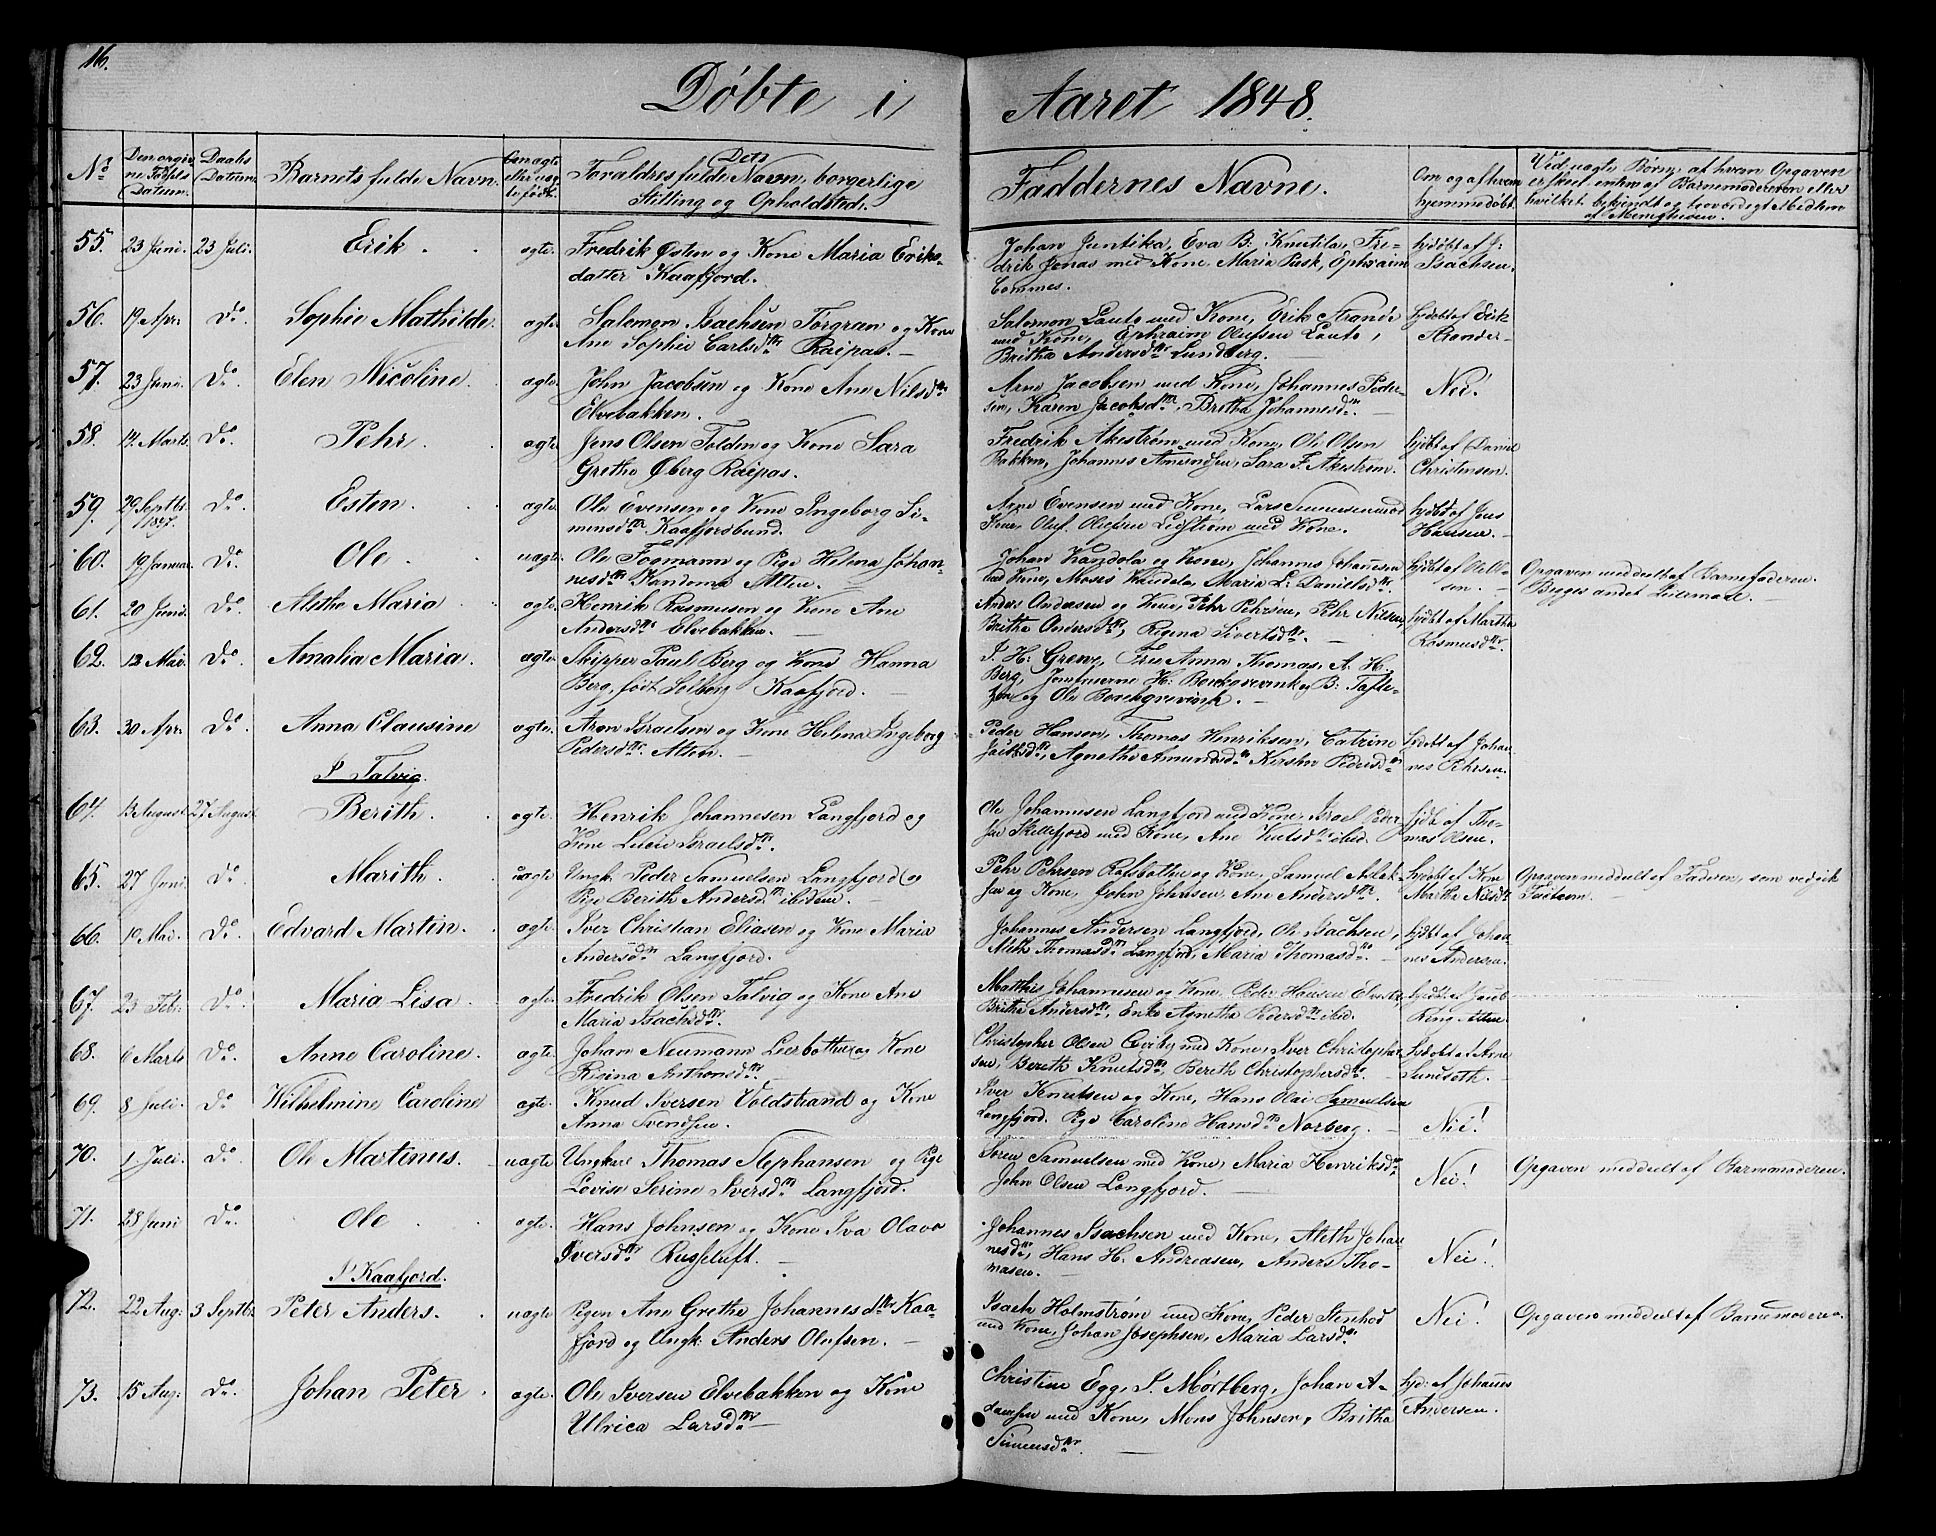 16.
Døbte i Aaret 1848.
No Barnets fulde Navn. Dets Forældres fulde Navn, borgerlige Stilling og Opholdsted. Faddernes Navne. Om og af hvem hjemmedøbt.
55. 23 Juni. 23 Juli. Erik. ægte. Fredrik Østen og Kone Maria Eriks-
datter Kaafjord.
Johan Juntika, Eva B: Knutila, Fre-
drik Jonas med Kone, Maria Pusk, Ephraim
hjdøbt af J:
Isachsen.
56. 19 Apr: Do. Sophie Mathilde. ægte. Salomon Isachsen Törgren og Kone
Ane Sophie Carlsdtr Raipas.
Salomon Lauto med Kone, Erik Strande
med Kone, Ephraim Olufsen Lauto,
Britha Andersdtr Lundberg.
hjdøbt af Erik
57. 23 Juni. Do. Elen Nicoline. ægte. John Jacobsen og Kone Ane Nilsdtr
Elvebakken.
Arne Jacobsen med Kone, Johannes Peder-
sen, Karen Jacobsdtr, Britha Johannesdtr.
Nei!
58. 14 Marts. Do. Pehr. ægte. Jens Olsen Foldin og Kone Sara
Grethe Øberg Raipas.
Fredrik Akestrøm med Kone, Ole Olsen
Bakken, Johannes Amundsen, Sara F. Akestrøm.
hjdøbt af Daniel
Christensen.
59. 29 Septbr 1847. Do. Esten. ægte. Ole Evensen og Kone Ingeborg Si-
monsdtr Kaafjordbund.
Arne Evensen med Kone, Lars Simonsen med
Kone, Oluf Olufsen Lidstrøm med Kone.
hjdøbt af Jens
Hansen.
60. 19 Januar. Do. Ole. uægte. Ole Fogmann og Pige Helena Johan-
nesdtr Kandoma Alten.
Johan Kandola og Kone, Johannes Johannesen
med Kone, Moses Kandola, Maria L. Danielsdtr.
hjdøbt af Ole Ol-
sen.
Opgaven meddelt af Barnefaderen.
Begges andet Leiermaal.
61. 20 Juni. Do. Alethe Maria ægte. Henrik Rasmusen og Kone Ane
Andersdtr Elvebakken.
Anders Andersen og Kone, Pehr Pehrsen, Pehr Nilsen,
Britha Andersdtr, Regina Sivertsdtr.
hjdøbt af Martha
Rasmusdtr.
62. 12 Mai. Do. Amalia Maria. ægte. Skipper Paul Berg og Kone Hanna
Berg, født Solberg Kaafjord.
J. H: Greve, Frue Anna Thomas, A. H.
Berg, Jomfruerne H: Borchgrevink, B: Tafte-
og Ole Borchgrevink.
63. 30 Apr: Do. Anna Clausine ægte. Aron Israelsen og Kone Helena Ingeborg
Pedersdtr. Alten.
Peder Hansen, Thomas Henriksen, Catrine
Agnethe Amundsdtr Kirsten Pedersdtr
hjdøbt af Johan-
nes Pehrsen.
I Talvig.
64. 13 August 27 August. Berith. ægte. Henrik Johannesen Langfjord og
Kone Lucie Israelsdtr.
Ole Johannesen Langfjord med Kone, Israel Peder-
sen Skillefjord med Kone, Ane Knutsdtr ibid.
hjdbt af Tho-
mas Olsen.
65. 27 Juni. Do. Marith. uægte. Ungk: Peder Samuelsen Langfjord og
Pige Berith Andersdtr ibidem.
Pehr Pehrsen Rafsbotten og Kone, Samuel Aslak-
sen og Kone, John Johnsen, Ane Andersdtr.
hjdøbt af Kone
Martha Nilsdtr
Opgaven meddelt af Faderen, som vedgik
66. 10 Mai. Do. Edvard Martin. ægte. Iver Christian Eliasen og Kone Maria
Andersdtr Langfjord.
Johannes Andersen Langfjord, Ole Isachsen,
Aleth Thomasdtr Langfjord, Maria Thomasdtr.
hjdbt af Johan-
nes Andersen
67. 23 Febr: Do. Maria Lisa. ægte. Fredrik Olsen Talvig og Kone Ane
Maria Isachsdtr.
Mathis Johannesen og Kone, Peder Hansen
Britha Andersdtr, Enke Agnetha Pedersdtr ibid.
hjdbt af Jacob
King Alten
68. 6 Marts Do. Anne Caroline. ægte. Johan Neumann Leerbotten og Kone
Risina Anthonsdtr.
Christopher Olsen Qviby med Kone, Iver Christopher-
sen, Bereth Knutsdtr, Bereth Christophersdtr.
hjdøbt af Arne
69. 8 Juli. Do. Wilhelmine Caroline ægte. Knud Iversen Voldstrand og Kone
Anna Svendsen.
Iver Knutsen og Kone, Hans Olai Samuelsen
Langfjord. Pige Caroline Hansdtr Norberg.
Nei!
70. 1 Juli. Do. Ole Martinus. uægte Ungkarl Thomas Stephansen og Pige
Lovise Serine Iversdtr Langfjord.
Søren Samuelsen med Kone, Maria Henriksdtr
John Olsen Langfjord.
Nei!
Opgaven meddelt af Barnemoderen.
71. 28 Juni Do. Ole ægte. Hans Johnsen og Kone Iva Olava
Iversdtr Russeluft.
Johannes Isachsen med Kone, Aleth Johan-
nesdtr, Hans H. Andreasen, Anders Tho-
masen.
Nei!
I Kaafjord.
72. 22 Aug: 3 Septbr. Peter Anders. uægte Pigen Ane Grethe Johannesdtr Kaa-
fjord og Ungk: Anders Olufsen.
Isach Holmstrøm med Kone, Peder Stenhod
med Kone, Johan Josephsen, Maria Larsdtr.
Nei!
Opgaven meddelt af Barnemoderen
73. 15 Aug: Do. Johan Peter ægte. Ole Iversen Elvebakken og Kone
Ulrica Larsdtr
Christine Egg, P. Mørtberg, Johan A-
damsen med Kone, Mons Johnsen, Britha
Simonsdtr.
hjd: af Johannes
Andersen.